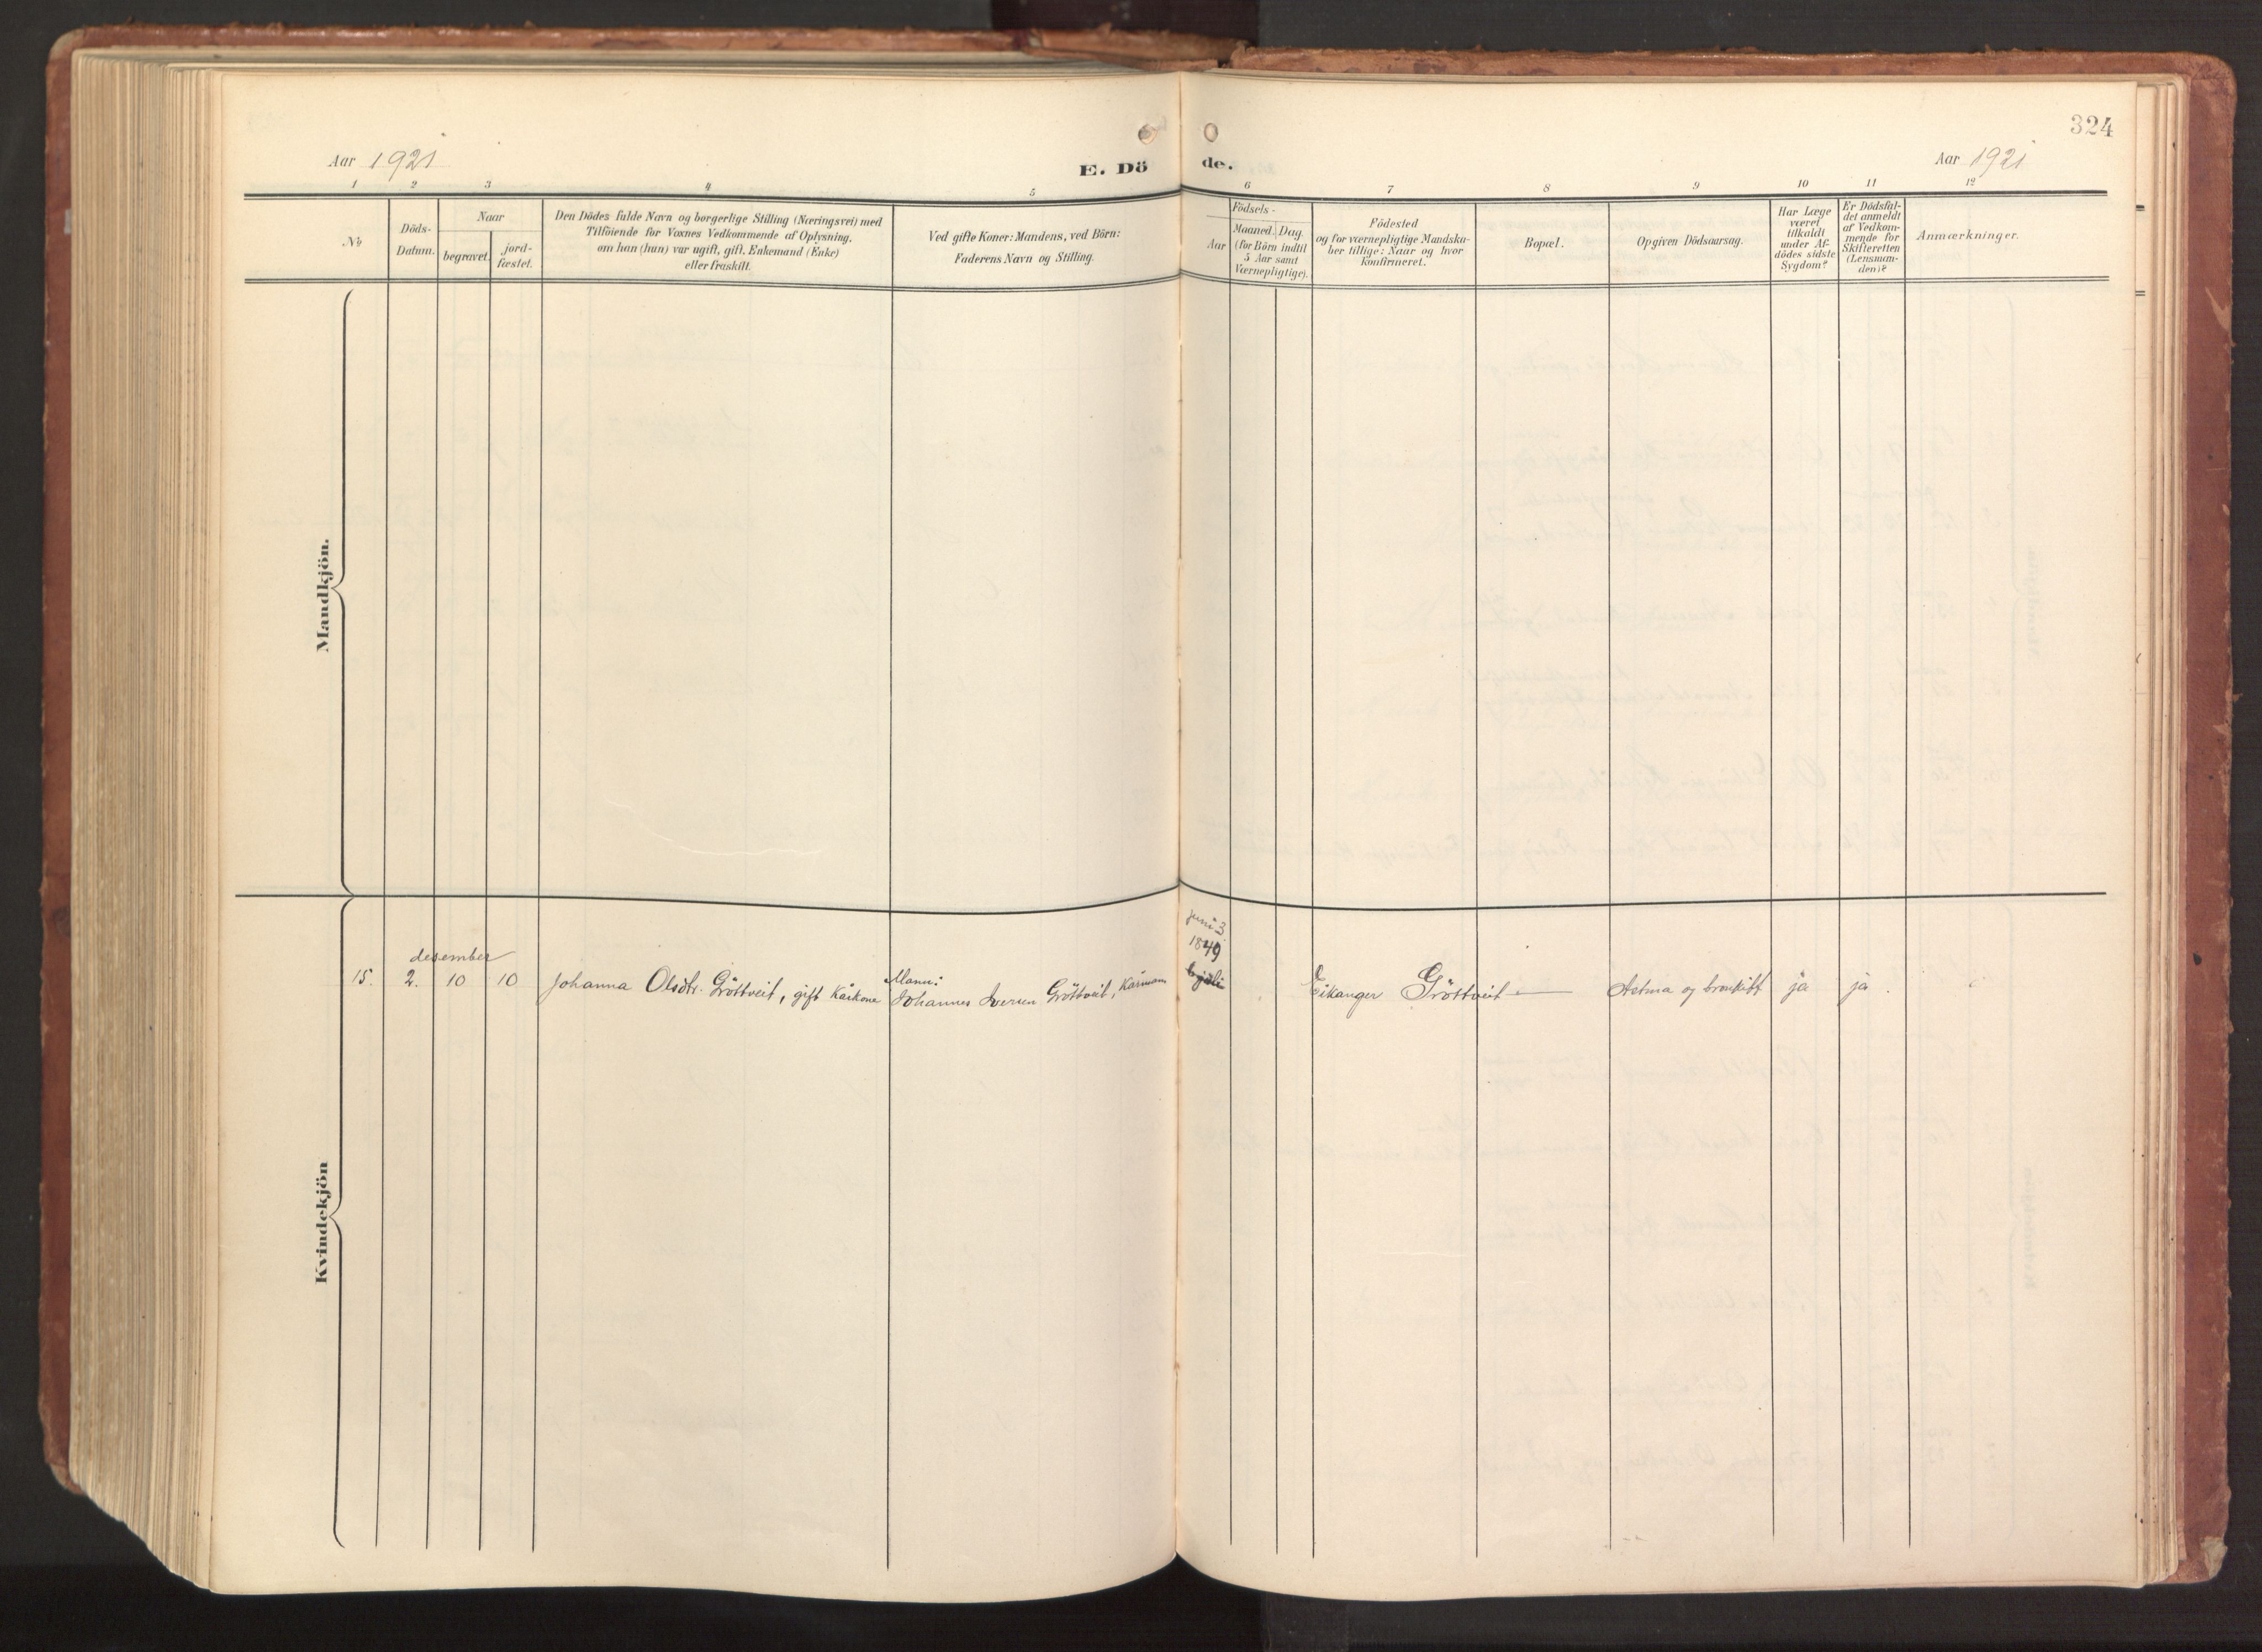 324
Aar 1921
E. Dö
de.
Aar 1921
1 2 3 4 5 6 7 8 9 10 11 12
No
Döds-
Datum.
Naar
begravet.
jord-
fæstet.
Den Dödes fulde Navn og borgerlige Stilling (Næringsvei) med
Tilföiende for Voxnes Vedkommende af Oplysning,
om han (hun) var ugift, gift, Enkemand (Enke)
eller fraskilt.
Ved gifte Koner: Mandens, ved Börn:
Faderens Navn og Stilling.
Födsels-
Aar
Maaned. Dag.
(for Börn indtil
5 Aar samt
Værnepligtige).
Födested
og for værnepligtige Mandska-
ber tillige: Naar og hvor
konfirmeret.
Bopæl.
Opgiven Dödsaarsag.
Har Læge
været
tilkaldt
under Af-
dödes sidste
Sygdom?
Er Dödsfal-
det anmeldt
af Vedkom-
mende for
Skifteretten
(Lensman-
den)?
Anmærkninger.
Mandkjön.
Kvindekjön
desember
15. 2. 10 10 Johanna Olsdtr. Gröttveit, gift kårkone
Mann:
Johannes Iversen Gröttveit, kårmann
juni 3
1849
Eikanger Gröttveit Astma og bronkitt ja ja